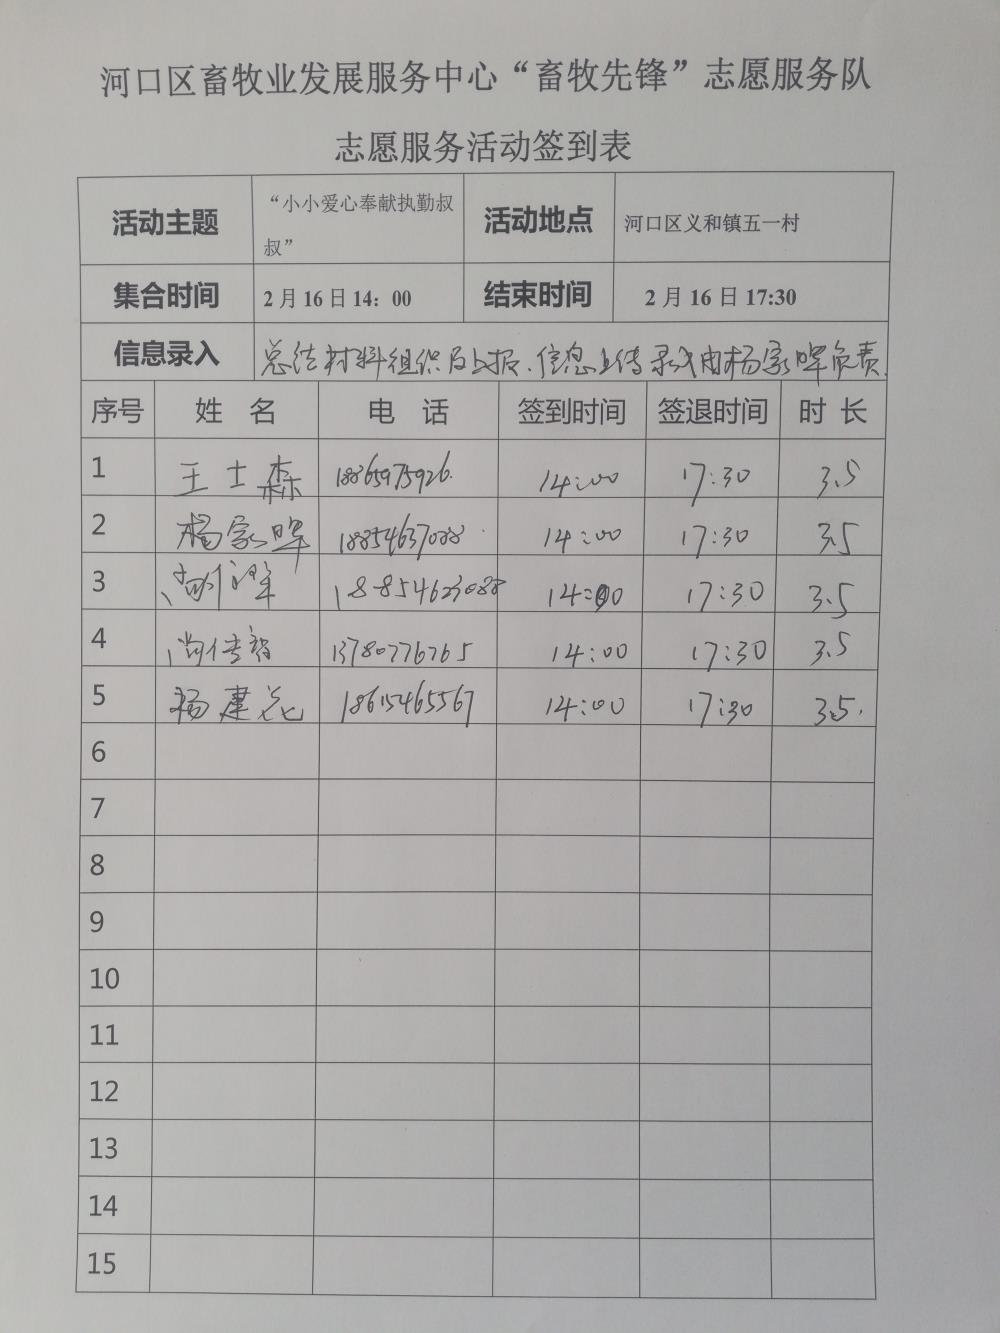 河口区畜牧业发展服务中心“畜牧先锋”志愿服务队
志愿服务活动签到表
活动主题 “小小爱心奉献执勤叔叔” 活动地点 河口区义和镇五一村
集合时间 2月16日14：00 结束时间 2月16日17:30
信息录入 总结材料组织及上报、信息上传录入由杨家晖负责.
序号 姓 名 电 话 签到时间 签退时间 时 长
1 王士森 18865975926. 14:00 17:30 3.5
2 杨家晖 18854637088 14:00 17:30 3.5
3 14:00 17:30 3.5
4 尚传智 13780776765 14:00 17:30 3.5
5 杨建花 18615465567 14:00 17:30 3.5.
6
7
8
9
10
11
12
13
14
15